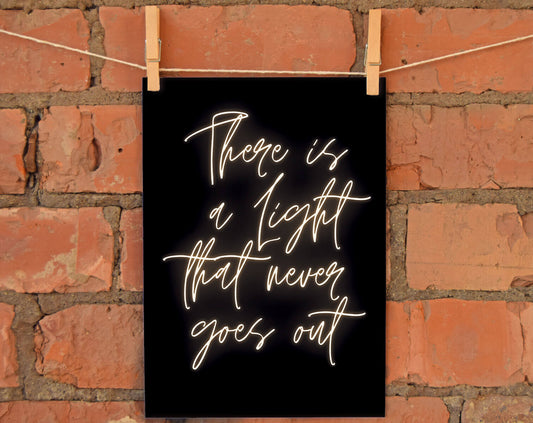 There is
a Light
that never
goes out